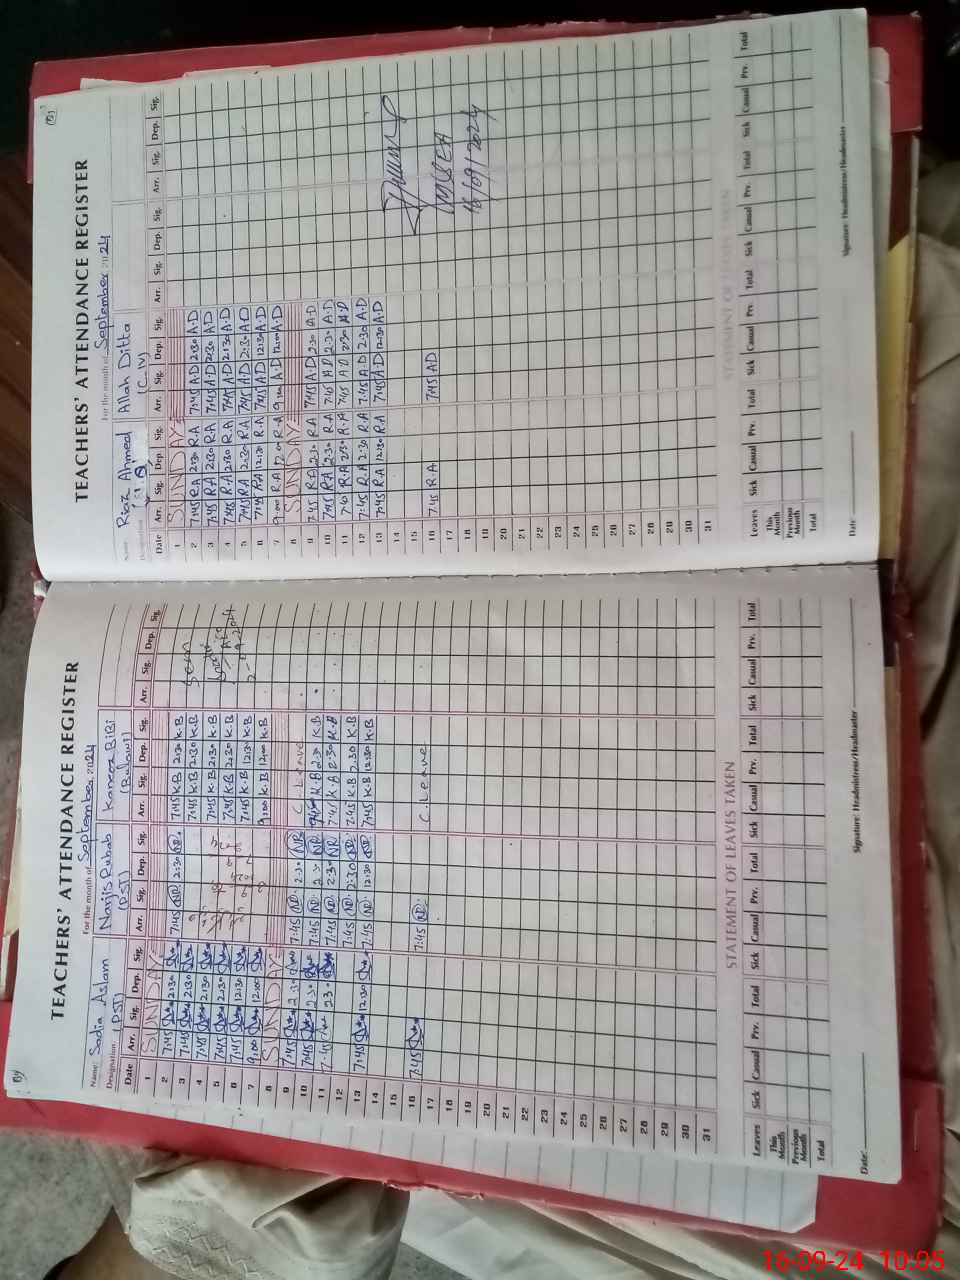 TEACHERS' ATTENDANCE REGISTER
For the month of September 2024
Name: Sadia Aslam Narjis Rubab Kaneez BiBi
Designation: (PST) (PST)
Date Arr. Sig. Dep. Sig. Arr. Sig. Dep. Sig. Arr. Sig. Dep. Sig. Arr. Sig. Dep. Sig.
1 SUNDAY
2 7:45 2:30 7:45 2:30 7:45 K.B 2:30 K.B
3 7:45 2:30 7:45 K.B 2:30 K.B
4 7:45 2:30 7:45 K.B 2:30 K.B
5 7:45 2:30 7:45 K.B 2:30 K.B
6 7:45 12:30 7:45 K.B 12:30 K.B
7 9:00 12:00 9:00 K.B 12:00 K.B
8 SUNDAY
9 7:45 2:30 7:45 2:30 C. Leave
10 7:45 2:30 7:45 2:30 7:45 K.B 2:30 K.B
11 7:45 2:30 7:45 2:30 7:45 K.B 2:30 K.B
12 7:45 2:30 7:45 K.B 2:30 K.B
13 7:45 12:30 7:45 12:30 7:45 K.B 12:30 K.B
14
15
16 7:45 7:45 C. Leave
17
18
19
20
21
22
23
24
25
26
27
28
29
30
31
STATEMENT OF LEAVES TAKEN
Leaves Sick Casual Prv. Total Sick Casual Prv. Total Sick Casual Prv. Total Sick Casual Prv. Total
This Month
Previous Month
Total
Date: Signature: Headmistress/Headmaster
TEACHERS' ATTENDANCE REGISTER
For the month of September 2024
Name Riaz Ahmed Allah Ditta
(C-IV)
Date Arr. Sig. Dep. Sig. Arr. Sig. Dep. Sig. Arr. Sig. Dep. Sig. Arr. Sig. Dep. Sig.
1 SUNDAY
2 7:45 R.A 2:30 R.A 7:45 A.D 2:30 A.D
3 7:45 R.A 2:30 R.A 7:45 A.D 2:30 A.D
4 7:45 R.A 2:30 R.A 7:45 A.D 2:30 A.D
5 7:45 R.A 2:30 R.A 7:45 A.D 2:30 A.D
6 7:45 R.A 12:30 R.A 7:45 A.D 12:30 A.D
7 9:00 R.A 12:00 R.A 9:00 A.D 12:00 A.D
8 SUNDAY
9 7:45 R.A 2:30 R.A 7:45 A.D 2:30 A.D
10 7:45 R.A 2:30 R.A 7:45 A.D 2:30 A.D
11 7:45 R.A 2:30 R.A 7:45 A.D 2:30 A.D
12 7:45 R.A 2:30 R.A 7:45 A.D 2:30 A.D
13 7:45 R.A 12:30 R.A 7:45 A.D 12:30 A.D
14
15
16 7:45 R.A 7:45 A.D
16/09/2024
17
18
19
20
21
22
23
24
25
26
27
28
29
30
31
STATEMENT OF LEAVES TAKEN
Leaves Sick Casual Prv. Total Sick Casual Prv. Total Sick Casual Prv. Total Sick Casual Prv. Total
This Month
Previous Month
Total
Date: Signature: Headmistress/Headmaster
16-09-24 10:05